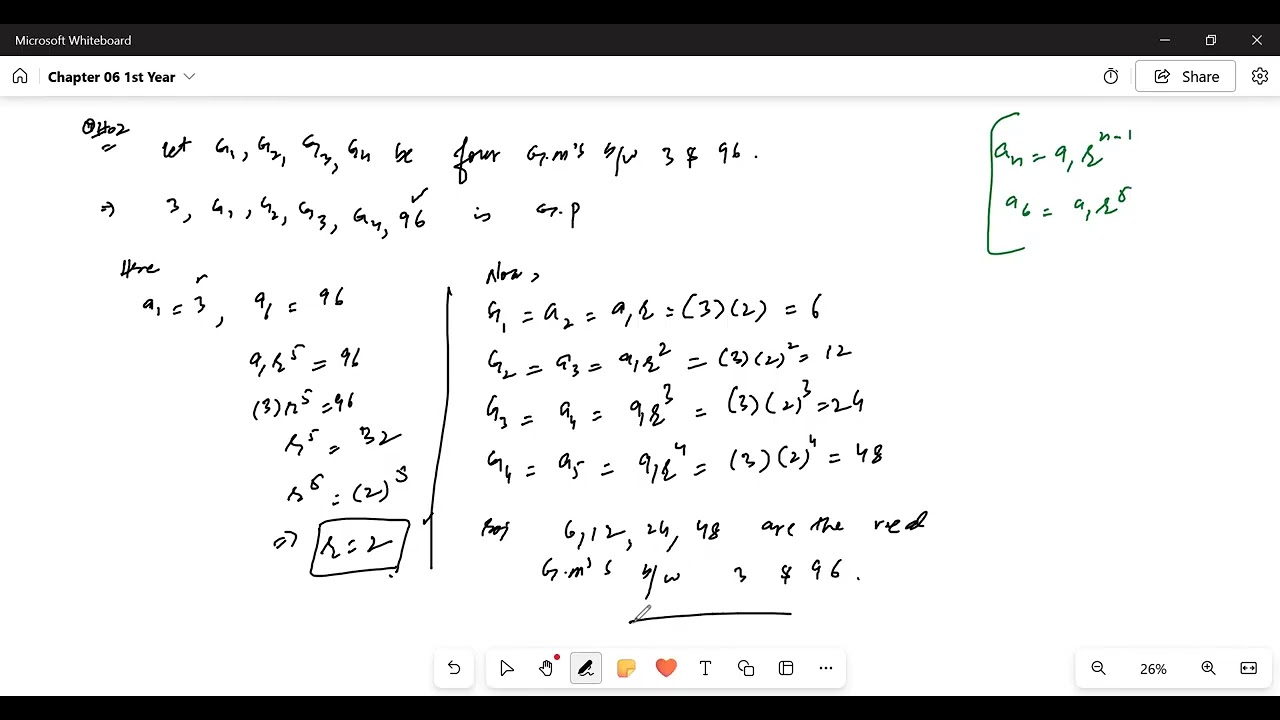 Microsoft Whiteboard
Chapter 06 1st Year
Share
Q#02
let G₁, G₂, G₃, G₄ be four G.M's b/w 3 & 96.
⇒ 3, G₁, G₂, G₃, G₄, 96 is G.P
aₙ = a₁rⁿ⁻¹
a₆ = a₁r⁵
Here
a₁ = 3, a₆ = 96
a₁r⁵ = 96
(3)r⁵ = 96
r⁵ = 32
r⁵ = (2)⁵
⇒ r = 2
Now,
G₁ = a₂ = a₁r = (3)(2) = 6
G₂ = a₃ = a₁r² = (3)(2)² = 12
G₃ = a₄ = a₁r³ = (3)(2)³ = 24
G₄ = a₅ = a₁r⁴ = (3)(2)⁴ = 48
6, 12, 24, 48 are the
G.M's b/w 3 & 96.
26%